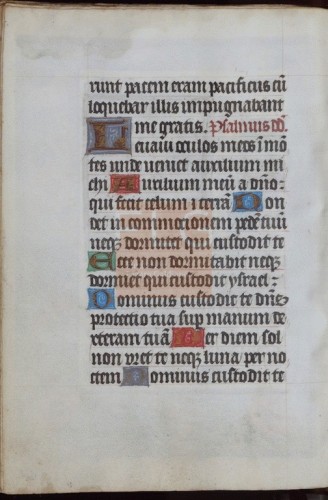 runt pacem eram pacificus cū
loquebar illis impugnabant
me gratis. Psalmus dd̄.
Leuaui oculos meos ī mō
tes unde ueniet auxilium mi
chi Auxilium meū a dño:
qui fecit celum i terrā Non
det in cōmocionem pedē tuū
neqȝ dormitet qui custodit te
Ecce non dormitabit neqȝ
dormiet qui custodit ysrael:
Dominus custodit te dñs
protectio tua sup manum de
xteram tuā Per diem sol
non uret te neqȝ luna per no
ctem Dominus custodit te